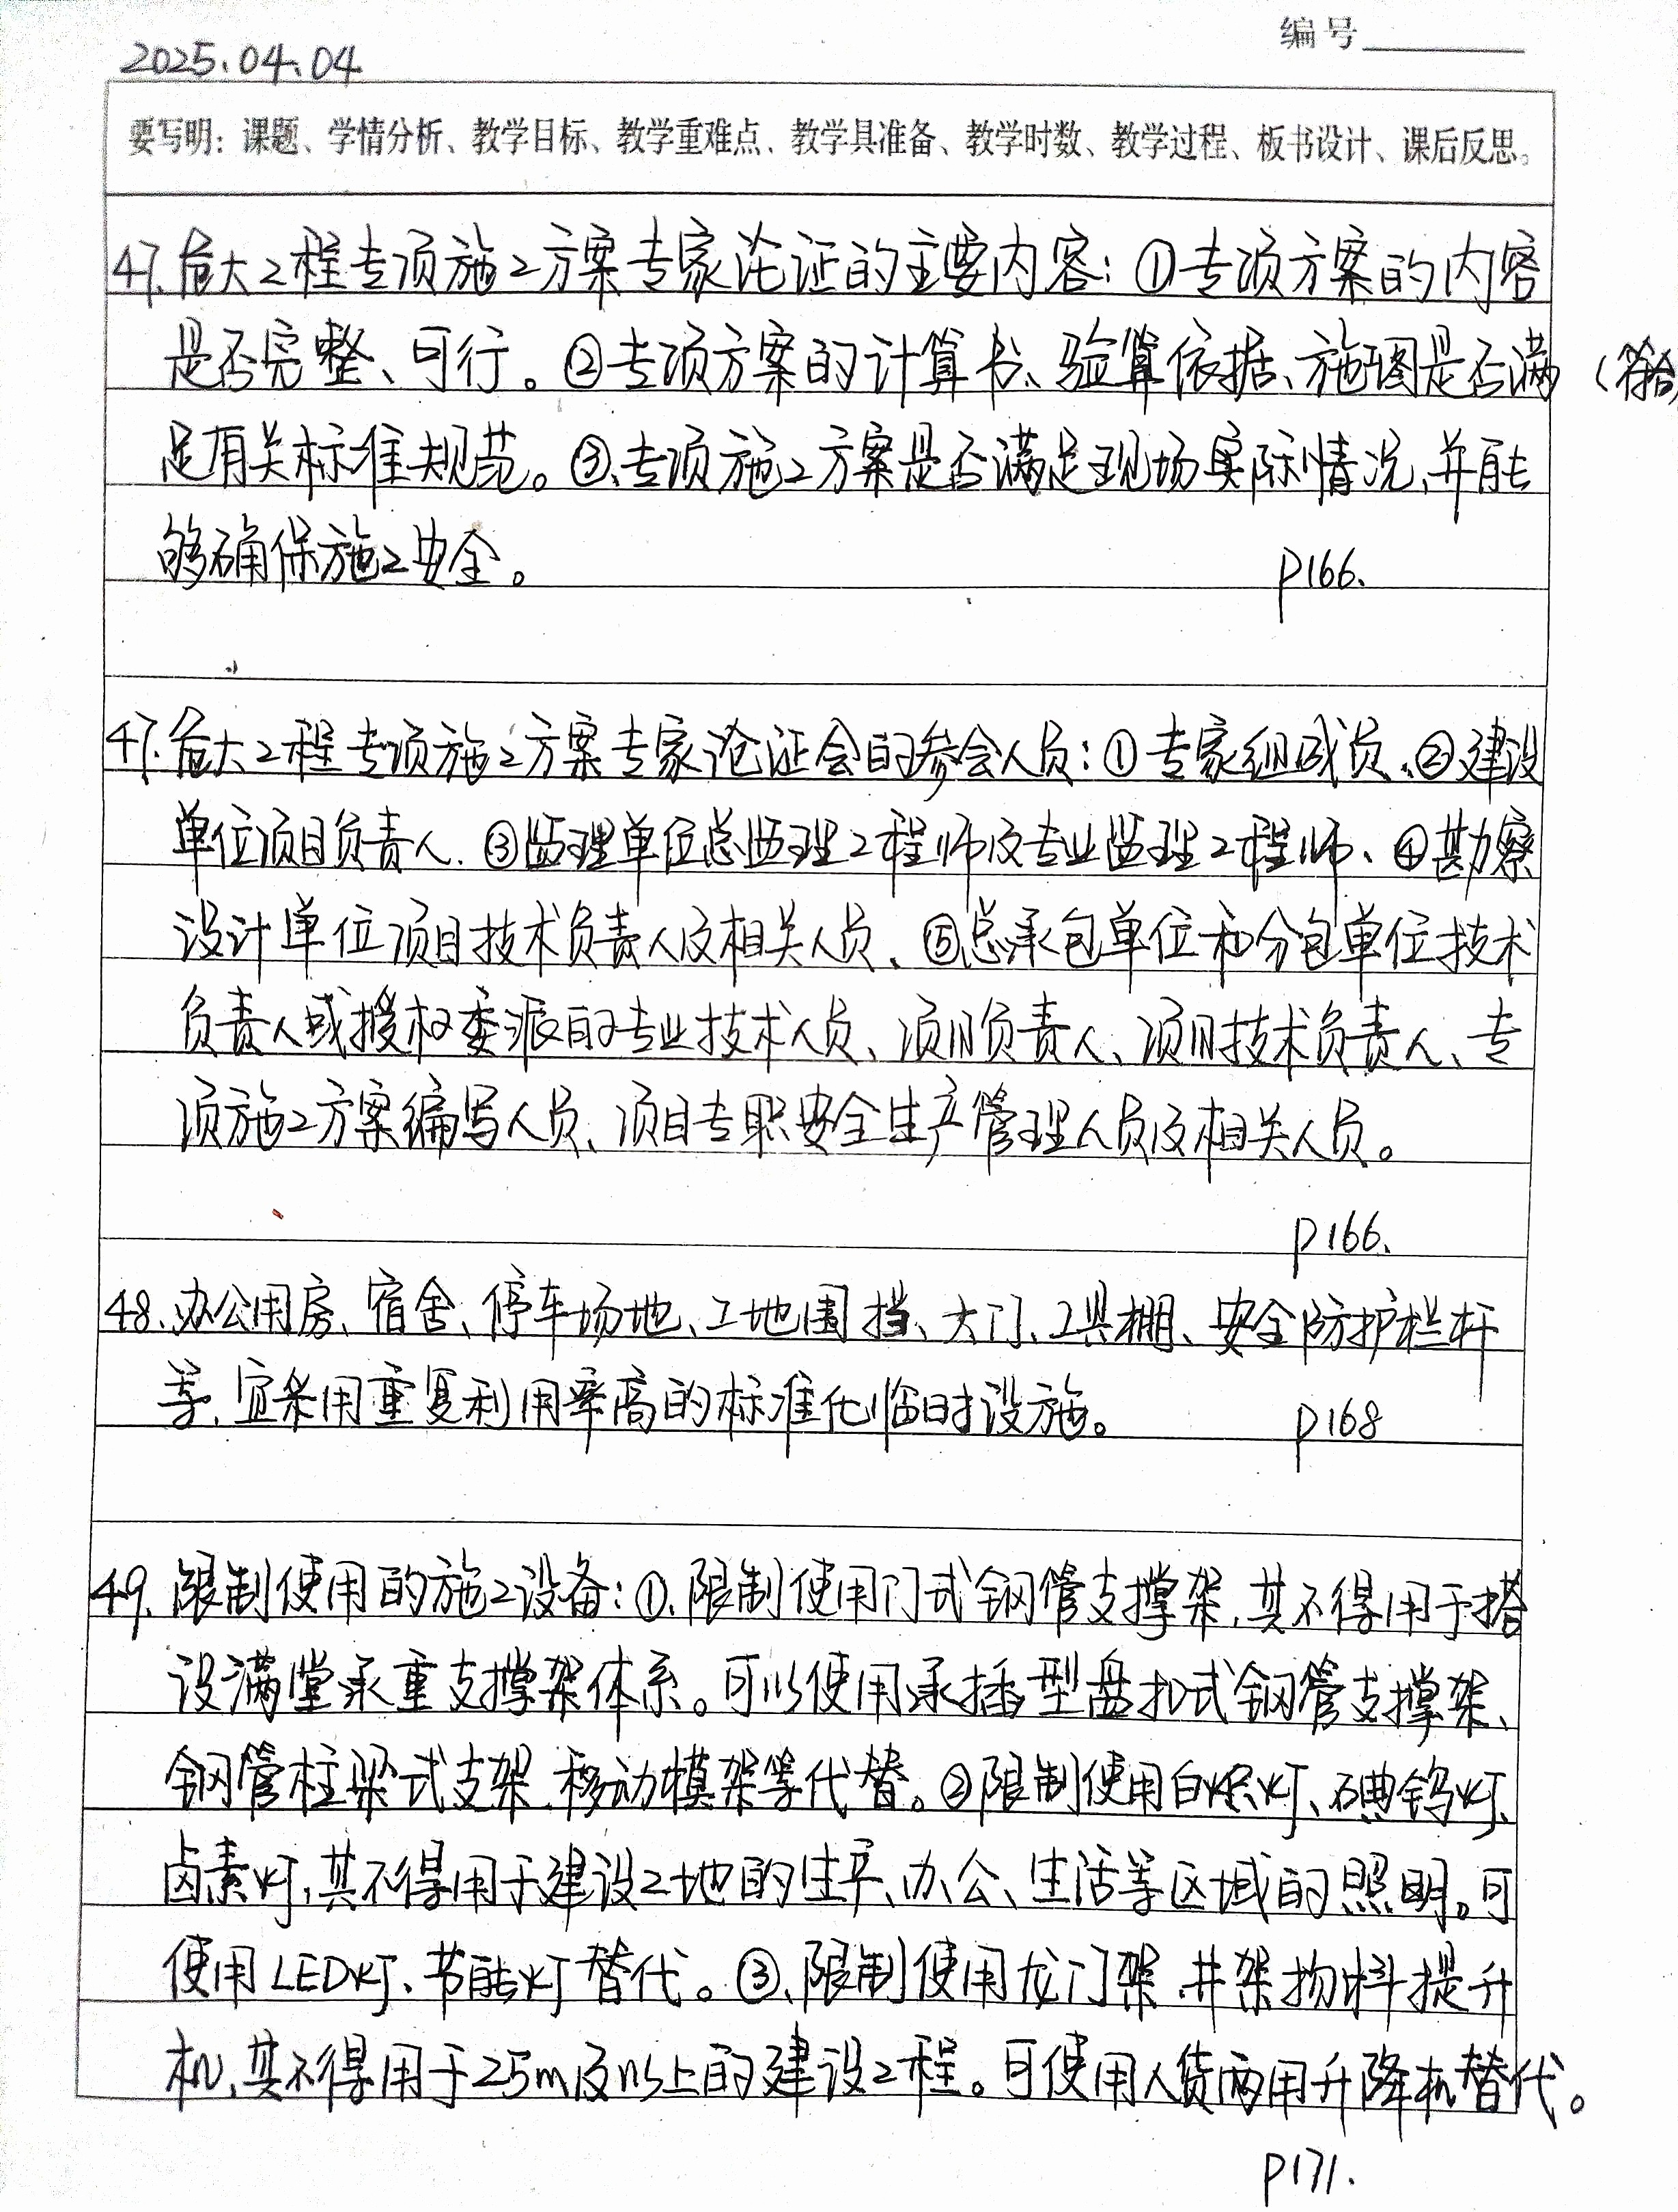 编号
2025.04.04
要写明：课题、学情分析、教学目标、教学重难点、教学具准备、教学时数、教学过程、板书设计、课后反思。
47.危大工程专项施工方案专家论证的主要内容：①专项方案的内容
是否完整、可行。②专项方案的计算书、验算依据、施工图是否满（符合）
足有关标准规范。③、专项施工方案是否满足现场实际情况，并能
够确保施工安全。 P166.
47.危大工程专项施工方案专家论证会的参会人员：①专家组成员、②建设
单位项目负责人、③监理单位总监理工程师及专业监理工程师、④勘察
设计单位项目技术负责人及相关人员、⑤总承包单位和分包单位技术
负责人或授权委派的专业技术人员、项目负责人、项目技术负责人、专
项施工方案编写人员、项目专职安全生产管理人员及相关人员。
P166.
48.办公用房、宿舍、停车场地、工地围挡、大门、工具棚、安全防护栏杆
等，宜采用重复利用率高的标准化临时设施。 P168
49.限制使用的施工设备：①、限制使用门式钢管支撑架，其不得用于搭
设满堂承重支撑架体系。可以使用承插型盘扣式钢管支撑架、
钢管柱梁式支架、移动模架等代替。②限制使用白炽灯、碘钨灯、
卤素灯，其不得用于建设工地的生产、办公、生活等区域的照明。可
使用LED灯、节能灯替代。③、限制使用龙门架、井架物料提升
机，其不得用于25m及以上的建设工程。可使用人货两用升降机替代。
P171.